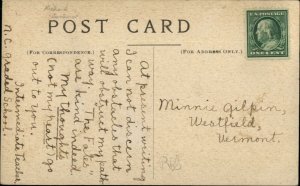 POST CARD
(FOR CORRESPONDENCE.)
(FOR ADDRESS ONLY.)
At present writing
I can not discern
any obstacles that
will obstruct my path
way. "The Fates"
are kind indeed
My thoughts
(not my heart) go
out to you.
Intermediate Teacher
N.C. Graded School.
Minnie Gilpin,
Westfield,
Vermont.